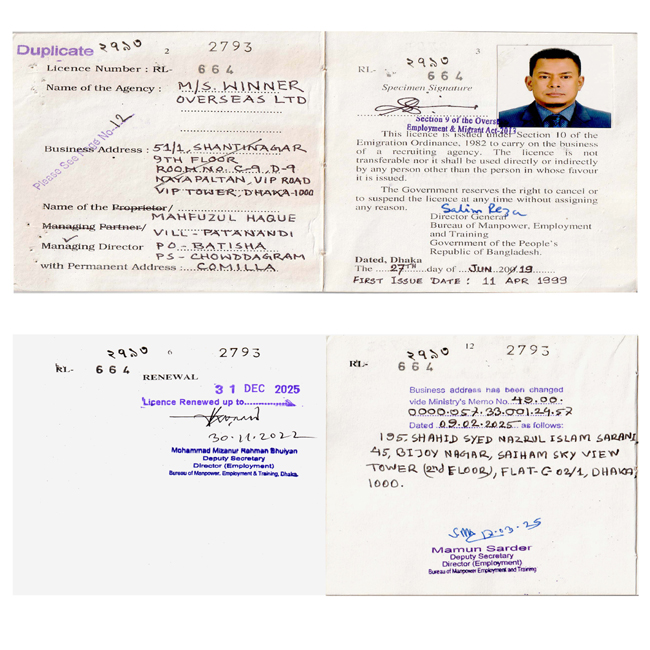 Duplicate ২৭৯৩ 2 2793
Licence Number : RL- 664
Name of the Agency : M/S. WINNER
OVERSEAS LTD
Please See Page No-12
Business Address : 51/1, SHANTINAGAR
9TH FLOOR
ROOM NO C-9, D-9
NAYAPALTAN, VIP ROAD
VIP TOWER, DHAKA-1000
Name of the Proprietor/
MAHFUZUL HAQUE
Managing Partner/ VILL-PATANANDI
Managing Director PO-BATISHA
PS-CHOWDDAGRAM
with Permanent Address : COMILLA
3
২৭৯৩
RL- 664
Specimen Signature
Section 9 of the Overs
Employment & Migrant Act-2013
This licence is issued under Section 10 of the
Emigration Ordinance, 1982 to carry on the business
of a recruiting agency. The licence is not
transferable nor it shall be used directly or indirectly
by any person other than the person in whose favour
it is issued.
The Government reserves the right to cancel or
to suspend the licence at any time without assigning
any reason. Salim Reza
Director General
Bureau of Manpower, Employment
and Training
Government of the People's
Republic of Bangladesh.
Dated, Dhaka
The 27TH day of JUN 2019
FIRST ISSUE DATE : 11 APR 1999
২৭৯৩ 6 2793
RL- 664
RENEWAL
31 DEC 2025
Licence Renewed up to
30.11.2022
Mohammad Mizanur Rahman Bhuiyan
Deputy Secretary
Director (Employment)
Bureau of Manpower, Employment & Training, Dhaka.
২৭৯৩ 12 2793
RL- 664
Business address has been changed
vide Ministry's Memo No. 49.00.
0000.057.33.001.24.57
Dated 09.02.2025 as follows:
195, SHAHID SYED NAZRUL ISLAM SARANI
45, BIJOY NAGAR, SAIHAM SKY VIEW
TOWER (2nd FLOOR), FLAT-C-02/1, DHAKA
1000.
12.03.25
Mamun Sarder
Deputy Secretary
Director (Employment)
Bureau of Manpower Employment and Training